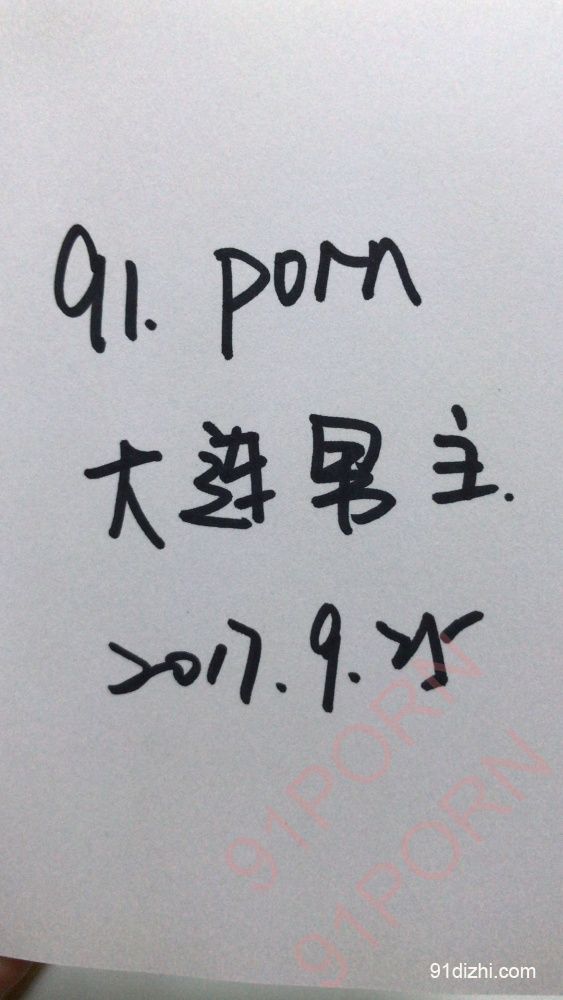 91. porn
大连男主.
2017.9.25
91PORN
91PORN
91dizhi.com